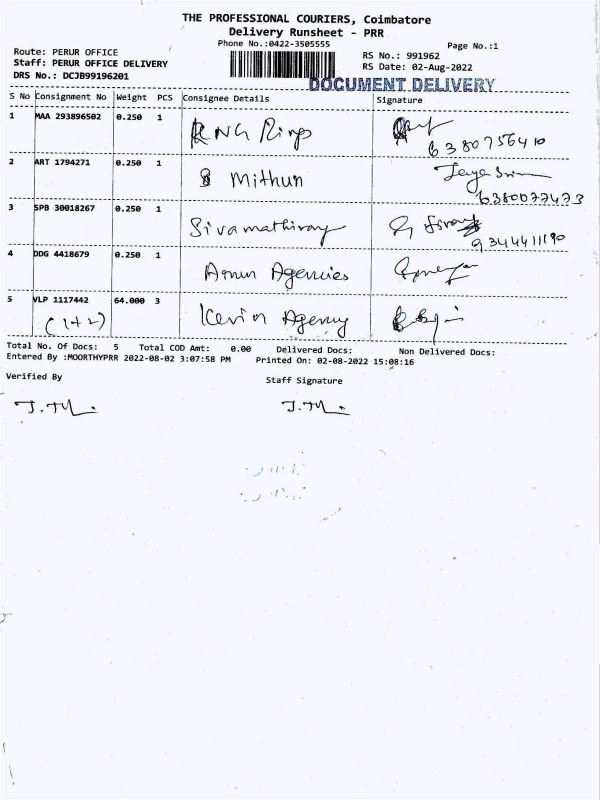 THE PROFESSIONAL COURIERS, Coimbatore
Delivery Runsheet - PRR
Phone No.:0422-3505555
Page No.:1
Route: PERUR OFFICE
Staff: PERUR OFFICE DELIVERY
DRS No.: DCJB99196201
RS No.: 991962
RS Date: 02-Aug-2022
DOCUMENT DELIVERY
S No Consignment No Weight PCS Consignee Details Signature
1 MAA 293896502 0.250 1 RNG Rings
6380756410
2 ART 1794271 0.250 1 S Mithun
6380077473
3 SPB 30018267 0.250 1 Sivamathiray
9344411190
4 DDG 4418679 0.250 1 Amun Agencies
5 VLP 1117442 64.000 3 Kevin Agency
(1+2)
Total No. Of Docs: 5 Total COD Amt: 0.00 Delivered Docs: Non Delivered Docs:
Entered By :MOORTHYPRR 2022-08-02 3:07:58 PM Printed On: 02-08-2022 15:08:16
Verified By Staff Signature